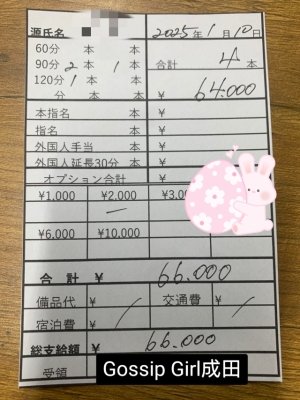 源氏名
2025年1月10日
60分 本 本
90分 2 本 1 本
合計 4 本
120分 1 本 本
分 本 本
¥ 64.000
本指名 本 ¥
指名 本 ¥
外国人手当 本 ¥
外国人延長30分 本 ¥
オプション合計 ¥
¥1,000 ¥2,000 ¥3,0
¥6,000 ¥10,000
合計 ¥ 66.000
備品代 ¥ 交通費 ¥
宿泊費 ¥
総支給額 ¥ 66.000
受領
Gossip Girl成田